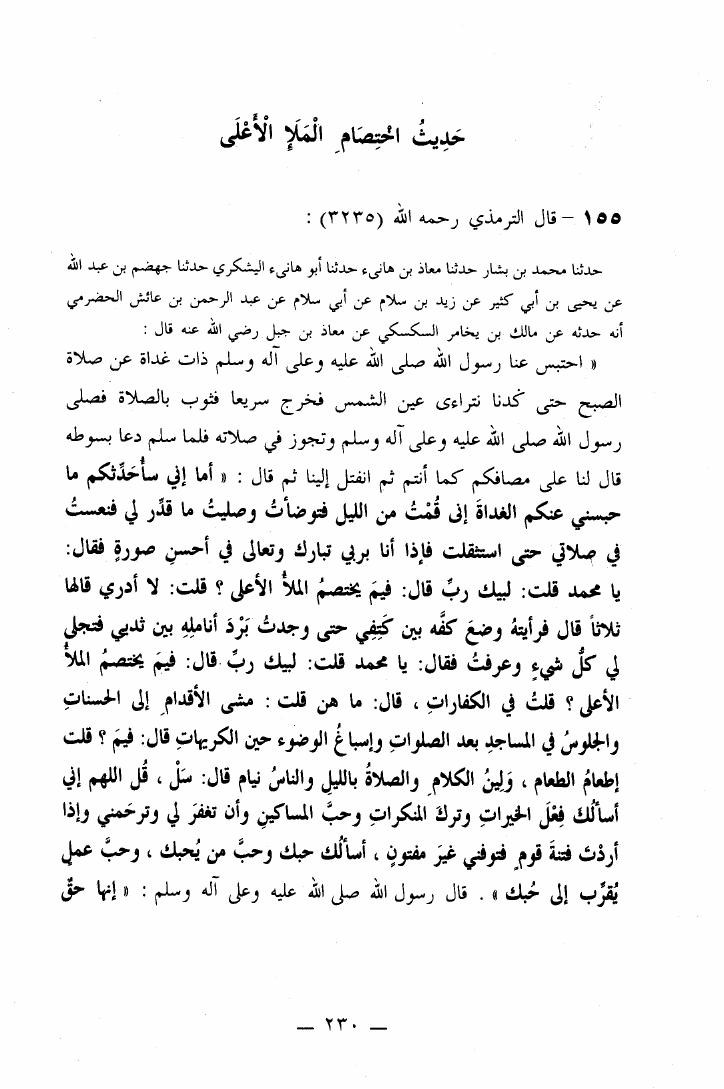 حَدِيثُ اخْتِصَامِ الْمَلَإِ الْأَعْلَى
١٥٥ – قال الترمذي رحمه الله (٣٢٣٥) :
حدثنا محمد بن بشار حدثنا معاذ بن هانىء حدثنا أبو هانىء اليشكري حدثنا جهضم بن عبد الله
عن يحيى بن أبي كثير عن زيد بن سلام عن أبي سلام عن عبد الرحمن بن عائش الحضرمي
أنه حدثه عن مالك بن يخامر السكسكي عن معاذ بن جبل رضي الله عنه قال :
« احتبس عنا رسول الله صلى الله عليه وعلى آله وسلم ذات غداة عن صلاة
الصبح حتى كدنا نتراءى عين الشمس فخرج سريعا فثوب بالصلاة فصلى
رسول الله صلى الله عليه وعلى آله وسلم وتجوز في صلاته فلما سلم دعا بسوطه
قال لنا على مصافكم كما أنتم ثم انفتل إلينا ثم قال : « أما إني سأحَدِّثكم ما
حبسني عنكم الغداةَ إنى قُمْتُ من الليل فتوضأتُ وصليتُ ما قدِّر لي فنعستُ
في صلاتي حتى استثقلت فإذا أنا بربي تبارك وتعالى في أحسنِ صورةٍ فقال:
يا محمد قلت: لبيك ربِّ قال: فيمَ يختصمُ الملأُ الأعلى ؟ قلت: لا أدري قالها
ثلاثاً قال فرأيتهُ وضعَ كفَّه بين كَتِفِي حتى وجدتُ بَرْدَ أناملِهِ بين ثديي فتجلى
لي كلُّ شيءٍ وعرفتُ فقال: يا محمد قلت: لبيك ربِّ قال: فيمَ يختصمُ الملأُ
الأعلى ؟ قلتُ في الكفاراتِ ، قال: ما هن قلت : مشى الأقدامِ إلى الحسناتِ
والجلوسُ في المساجدِ بعد الصلواتِ وإسباغُ الوضوء حين الكريهاتِ قال: فيمَ ؟ قلت
إطعامُ الطعام ، وَلِينُ الكلامِ والصلاةُ بالليلِ والناسُ نيام قال: سَلْ ، قُل اللهم إني
أسألُكَ فِعْلَ الخيراتِ وتركَ المنكراتِ وحبَّ المساكينِ وأن تغفرَ لي وترحَمني وإذا
أردْتَ فتنةَ قومٍ فتوفني غيرَ مفتونٍ ، أسألُكَ حبك وحبَّ من يُحبك ، وحبَّ عملٍ
يُقرِّب إلى حُبك » . قال رسول الله صلى الله عليه وعلى آله وسلم : « إنها حقٌ
— ٢٣٠ —